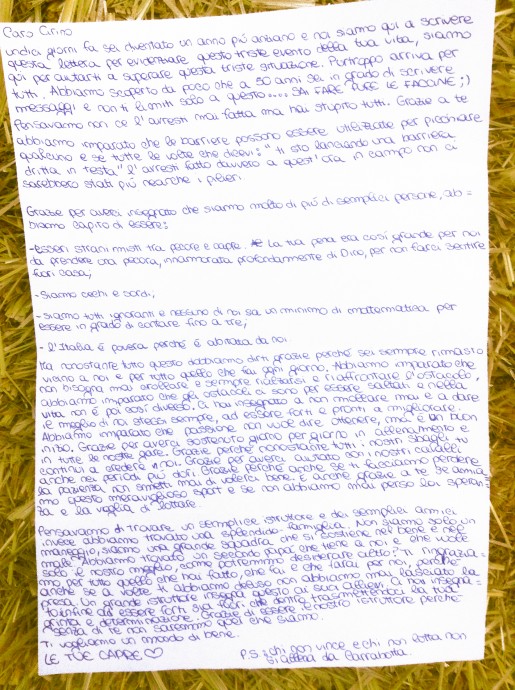 Caro Cirino
undici giorni fa sei diventato un anno più anziano e noi siamo qui a scrivere
questa lettera per evidenziare questo triste evento della tua vita, siamo
qui per aiutarti a superare questa triste situazione. Purtroppo arriva per
tutti. Abbiamo scoperto da poco che a 50 anni sei in grado di scrivere
messaggi e non ti limiti solo a questo.... SAI FARE PURE LE FACCINE ;)
Pensavamo non ce l'avresti mai fatta ma hai stupito tutti. Grazie a te
abbiamo imparato che le barriere possono essere utilizzate per picchiare
qualcuno e se tutte le volte che dicevi: "ti sto lanciando una barriera
dritta in testa" l'avresti fatto davvero a quest'ora in campo non ci
sarebbero stati più neanche i pilieri.
Grazie per averci insegnato che siamo molto di più di semplici persone, ab=
biamo capito di essere:
-esseri strani misti tra pecore e capre. La tua pena era così grande per noi
da prendere una pecora, innamorata profondamente di Dino, per non farci sentire
fuori casa;
-Siamo cechi e sordi,
-siamo tutti ignoranti e nessuno di noi sa un minimo di matematica per
essere in grado di contare fino a tre;
- l'Italia è povera perché è abitata da noi
Ma nonostante tutto questo dobbiamo dirti grazie perché sei sempre rimasto
vicino a noi e per tutto quello che fai ogni giorno. Abbiamo imparato che
non bisogna mai mollare e sempre rialzarsi e riaffrontare l'ostacolo,
abbiamo imparato che gli ostacoli ci sono per essere saltati e nella
vita non è poi così diverso. Ci hai insegnato a non mollare mai e a dare
il meglio di noi stessi sempre, ad essere forti e pronti a migliorare.
Abbiamo imparato che passione non vuol dire ottenere, ma è un buon
inizio. Grazie per averci sostenuto giorno per giorno in allenamento e
in tutte le nostre gare. Grazie perché nonostante tutti i nostri sbagli tu
continui a credere in noi. Grazie per averci aiutato con i nostri cavalli
anche nei periodi più duri. Grazie perché anche se ti facciamo perdere
la pazienza non smetti mai di volerci bene. È anche grazie a te se amia
mo questo meraviglioso sport e se non abbiamo mai perso la speran=
za e la voglia di lottare.
Pensavamo di trovare un semplice istruttore e dei semplici amici
invece abbiamo trovato una splendida famiglia. Non siamo solo un
maneggio, siamo una grande squadra che si sostiene nel bene e nel
male. Abbiamo trovato un secondo papà che tiene a noi e che vuole
solo il nostro meglio, come potremmo desiderare altro? Ti ringrazia=
mo per tutto quello che hai fatto, che fai e che farai per noi, perché
anche se a volte ti abbiamo deluso non abbiamo mai lasciato la
presa. Un grande istruttore insegna questo ai suoi allievi, a noi insegna=
to inoltre ad essere forti sia fuori che dentro, trasmettendoci la tua
grinta e determinazione. Grazie di essere il nostro istruttore perché
senza di te non saremmo quel che siamo.
Ti vogliamo un mondo di bene.
LE TUE CAPRE ♡
P.S. chi non vince e chi non lotta non
si allena da Carrabotta.